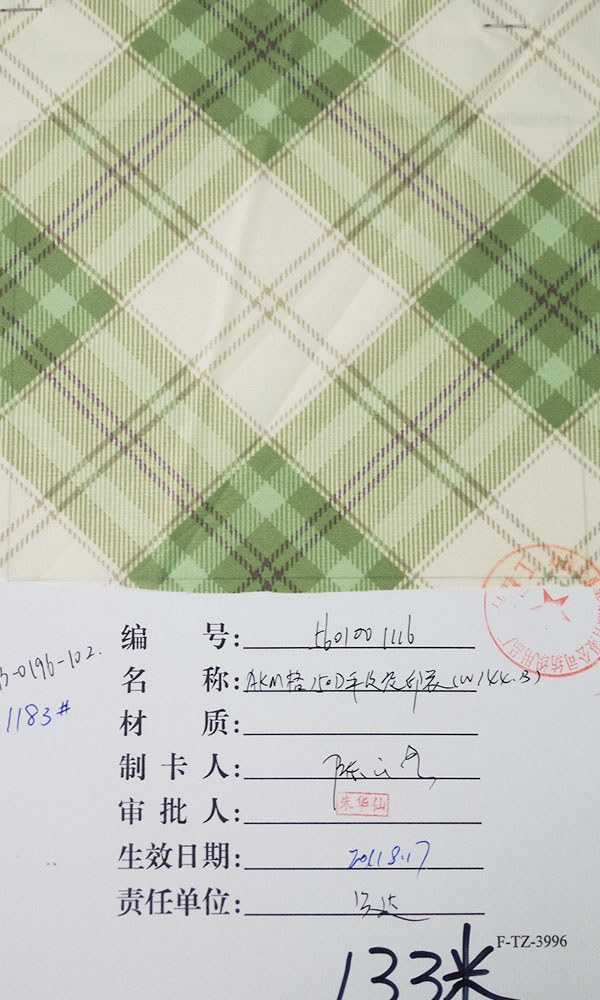 编 号: 5601001116
-0196-102.
名 称: AKM格150D平皮绒印花(W144.3)
1183#
材 质:
制 卡 人: 陈
审 批 人: 朱华仙
生效日期: 2011.8.17
责任单位:
F-TZ-3996
133米